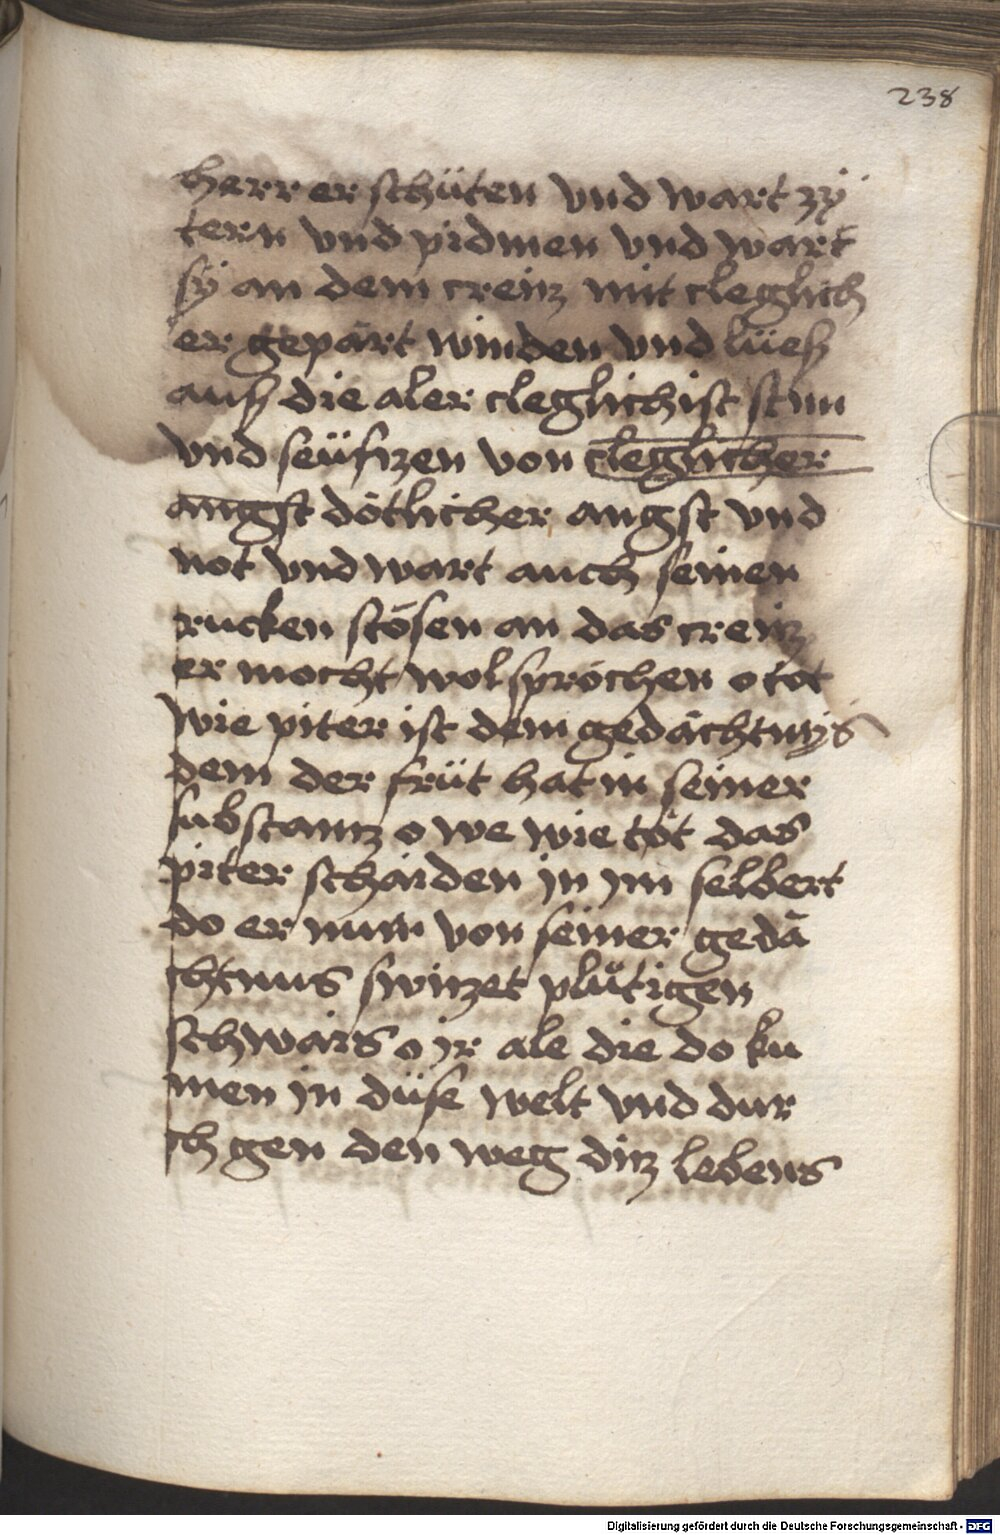 238
herr er schüten vnd wart zÿ
tern vnd pidmen vnd wart
sÿ an dem creücz mit cleglich
er gepärt winden vnd lüeß
auß die aler cleglichist stim
vnd seüfczen von cleglicher
angst dötlicher angst vnd
not vnd wart auch seinen
rucken stösen an das creücz
er mocht wol spröchen o tot
wie piter ist dem gedächtnÿs
dem der früt hat in seiner
substancz o we wie töt das
piter schaiden in jm selbert
do er nun von seiner gedä
chtnus swiczet plůtigen
schwais o jr ale die do ku
men in düse welt vnd dur
ch gen den weg dicz lebens
Digitalisierung gefördert durch die Deutsche Forschungsgemeinschaft - DFG